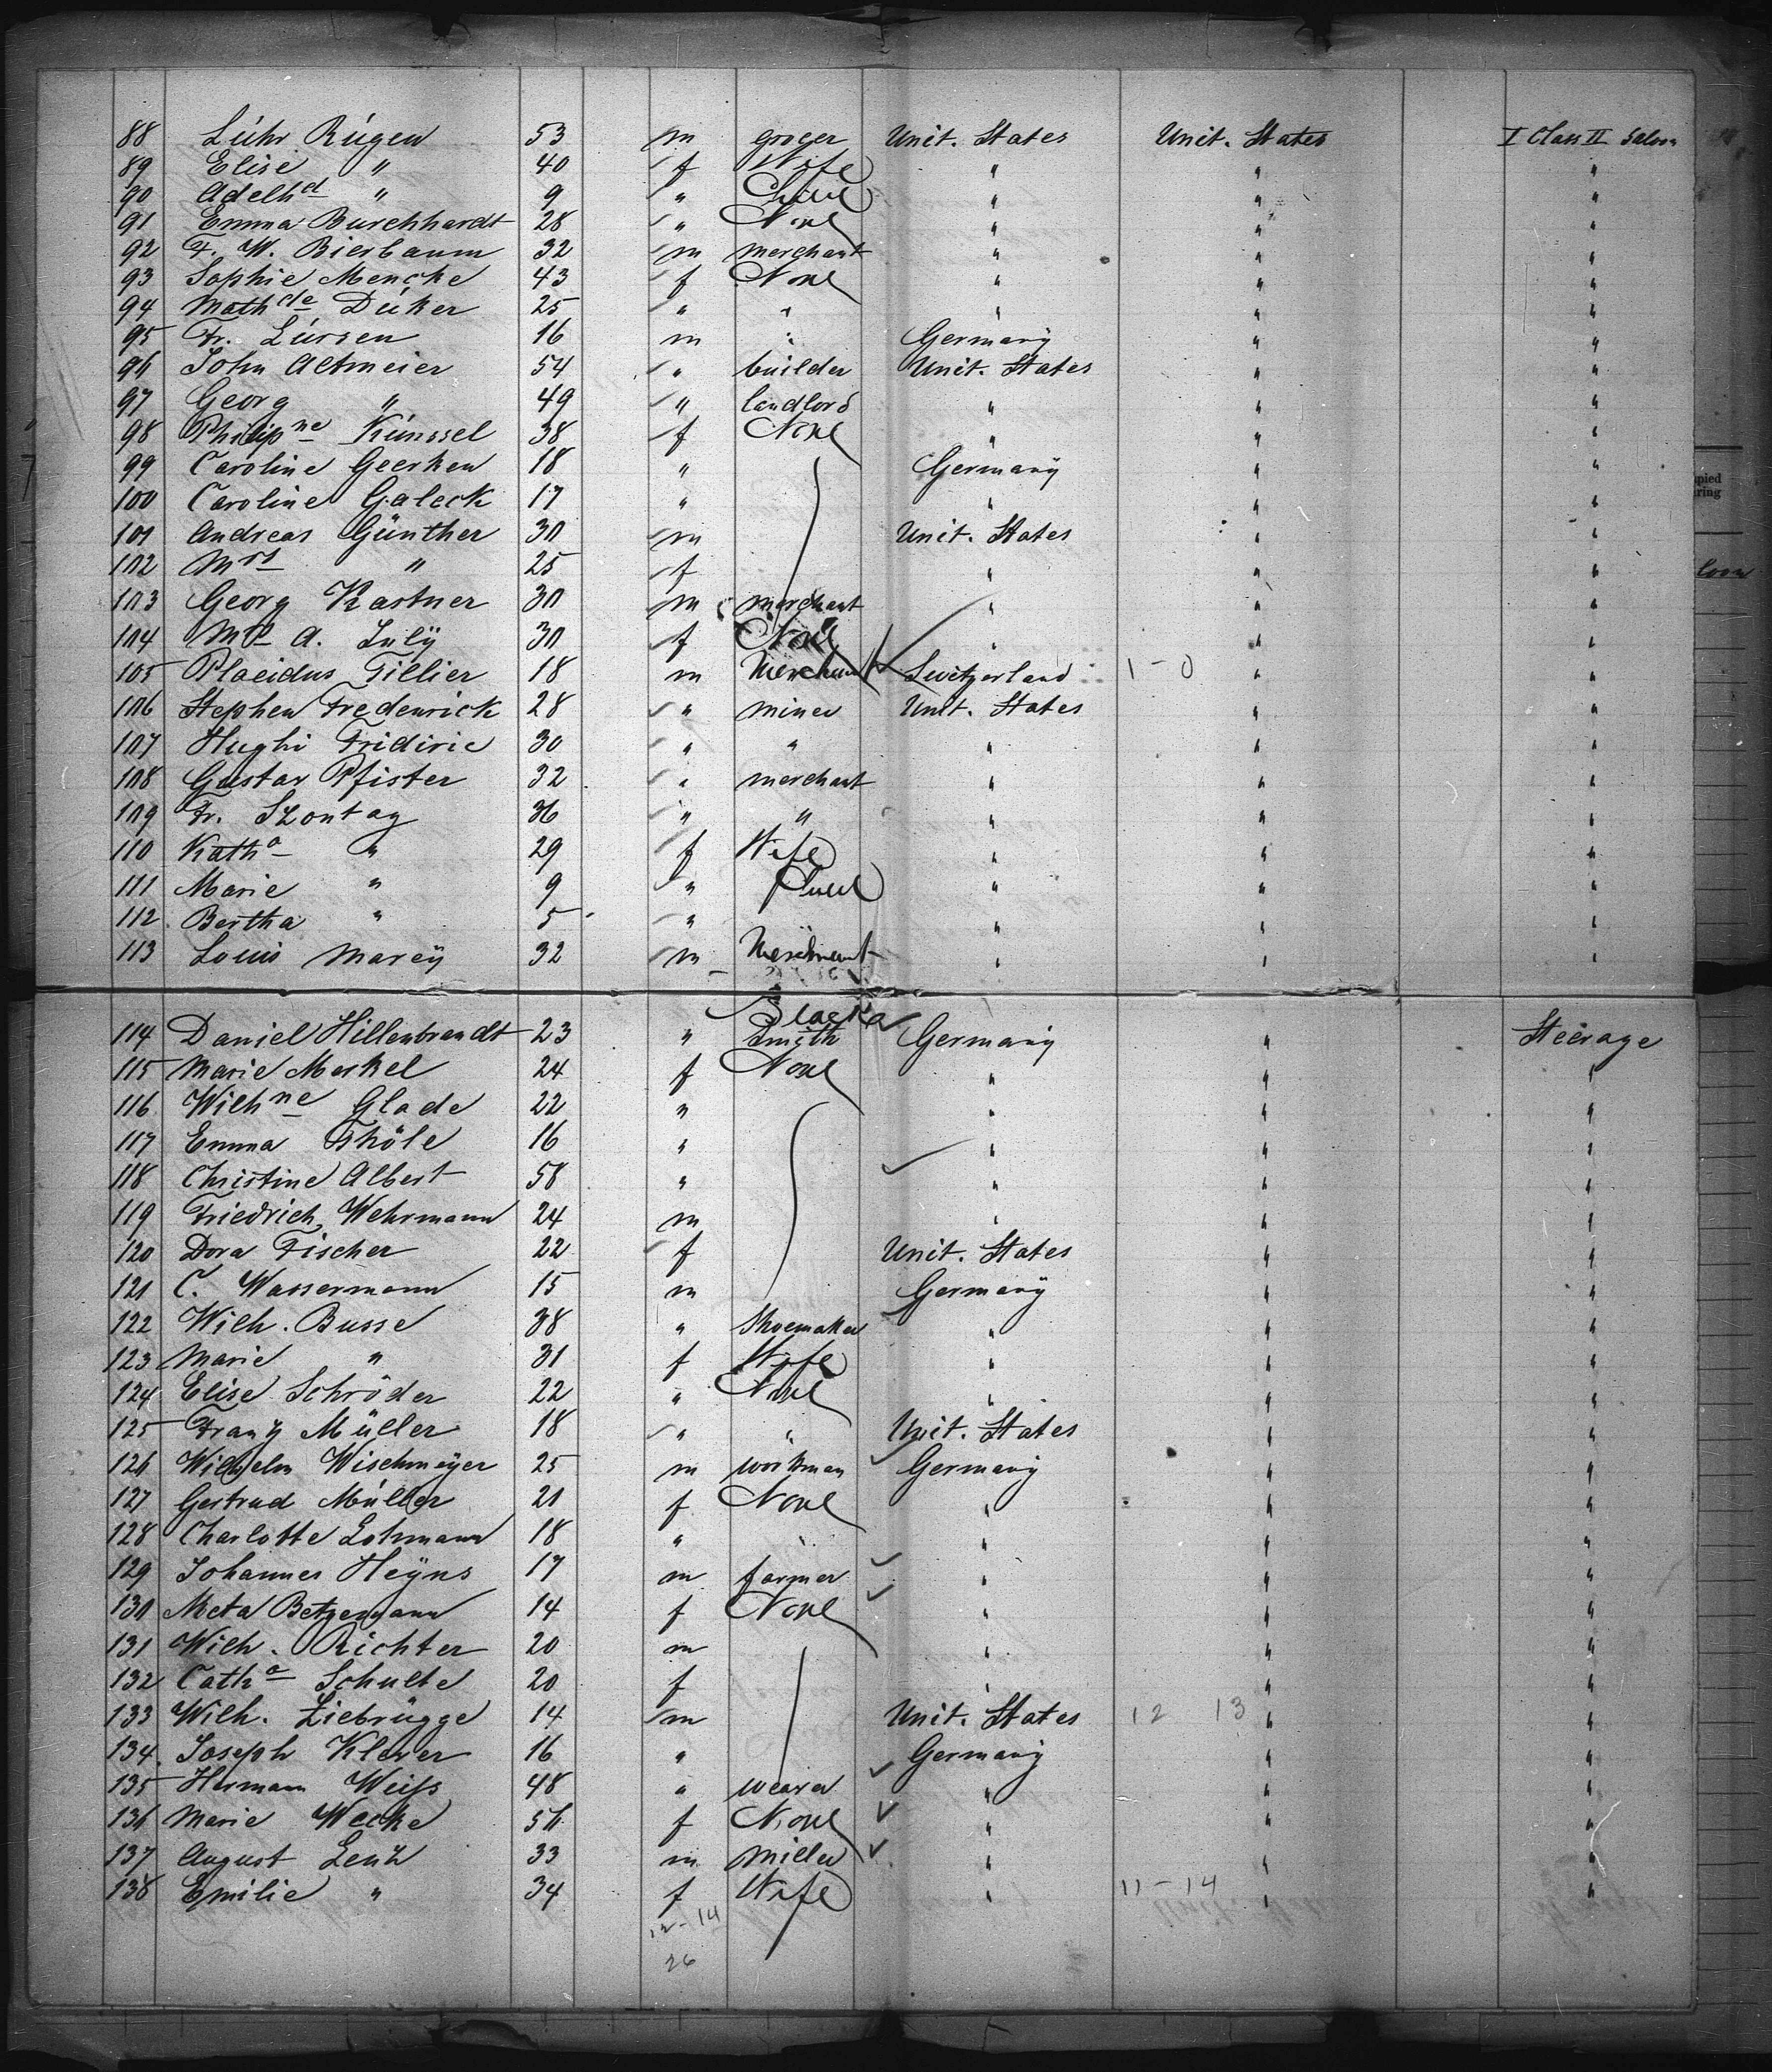 88 Lúhr Rúgen 53 m grocer Unit. States Unit. States I Class II Saloon
89 Elise " 40 f Wife " " "
90 Adelhd " 9 " Child " " "
91 Emma Burchhardt 28 " None " " "
92 F. W. Bierbaum 32 m merchant " " "
93 Sophie Mencke 43 f None " " "
94 Mathde Dúker 25 " " " " "
95 Fr. Lúrsen 16 m " Germany " "
96 John Altmeier 54 " builder Unit. States " "
97 Georg " 49 " landlord " " "
98 Philipne Kúnssel 38 f None " " "
99 Caroline Geerken 18 " Germany " "
100 Caroline Galeck 17 " " " "
101 Andreas Günther 30 m Unit. States " "
102 Mrs " 25 f " " "
103 Georg Kastner 30 m merchant " " "
104 A. Julÿ 30 f None " " "
105 Placidus Tillier 18 m Merchant Switzerland 1 - 0 " "
106 Stephen Frederick 28 " miner Unit. States " "
107 Hughi Fridiric 30 " " " " "
108 Gustav Pfister 32 " merchant " " "
109 Fr. Szontag 36 " " " " "
110 Katha " 29 f Wife " " "
111 Marie " 9 " Child " " "
112 Bertha " 5 " " " "
113 Louis Marcÿ 32 m Merchant " " "
114 Daniel Hillenbrandt 23 " Black Smith Germany " Steerage
115 Marie Merkel 24 f None " " "
116 Wilhne Glade 22 " " " "
117 Emma Thöle 16 " " " "
118 Christine Albert 58 " " " "
119 Friedrich Wehrmann 24 m " " "
120 Dora Fischer 22 f Unit. States " "
121 C. Wassermann 15 m Germany " "
122 Wilh. Busse 38 " Shoemaker " " "
123 Marie " 31 f Wife " " "
124 Elise Schröder 22 " None " " "
125 Franz Müller 18 " " Unit. States " "
126 Wilhelm Wischmeÿer 25 m workman Germany " "
127 Gertrud Múller 21 f None " " "
128 Charlotte Lohmann 18 " " " " "
129 Johannes Heÿns 17 m farmer " " "
130 Meta Betzemann 14 f None " " "
131 Wilh. Richter 20 m " " "
132 Catha Schulte 20 f " " "
133 Wilh. Ziebrügge 14 m Unit. States 12 13 " "
134 Joseph Klever 16 " Germany " "
135 Hermann Weiß 48 " weaver " " "
136 Marie Wecke 56 f None " " "
137 August Lenz 33 m miller " " "
138 Emilie " 34 f Wife " 11 - 14 " "
12 - 14
26